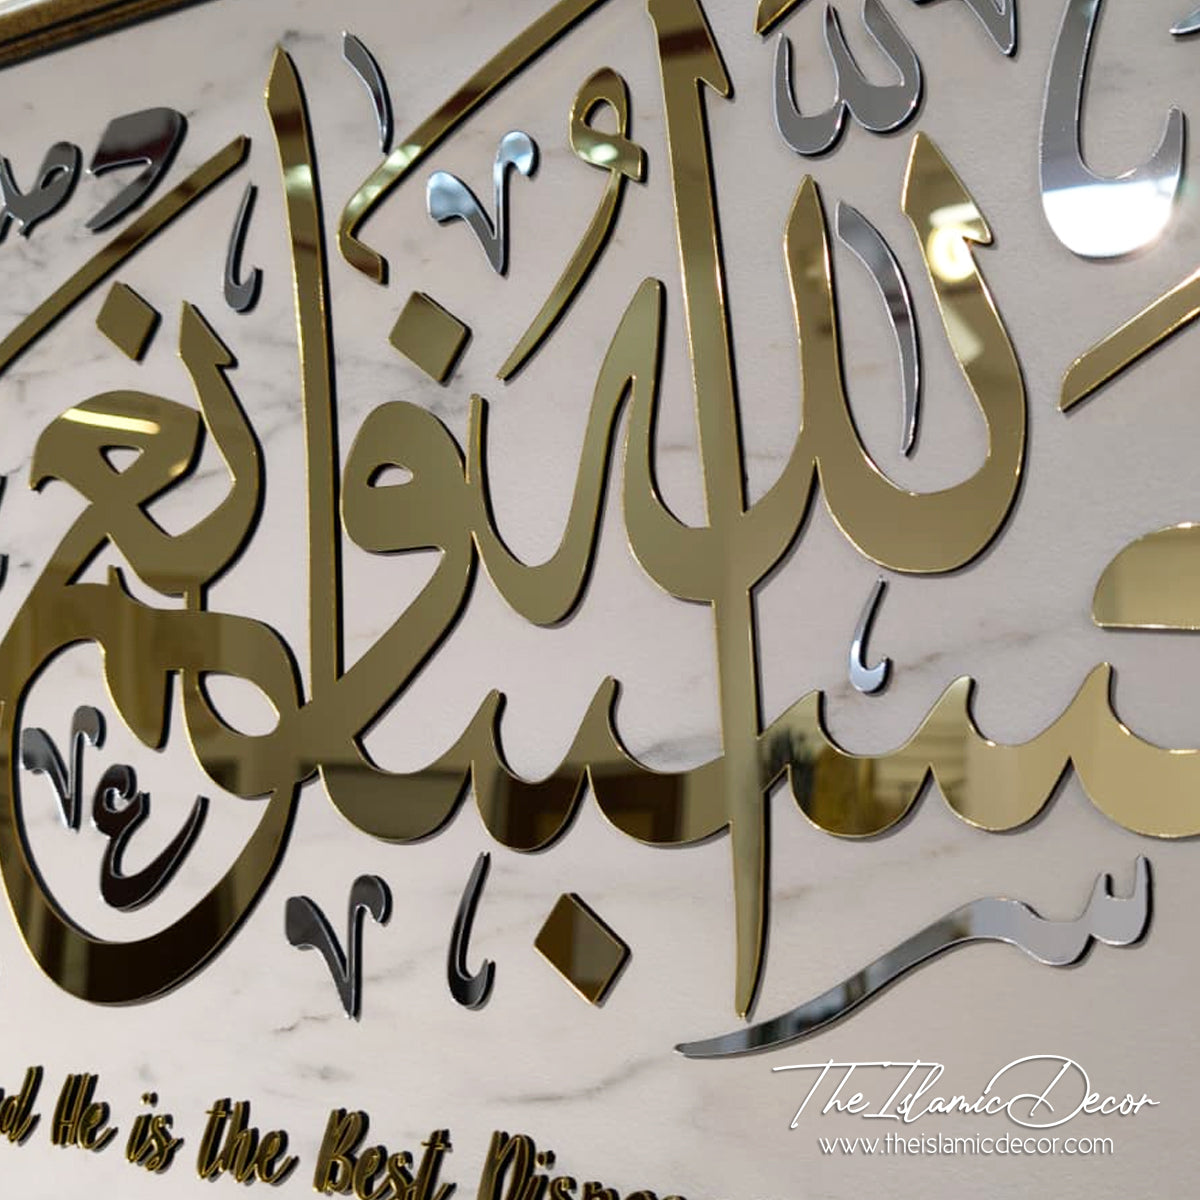 حسبنا الله ونعم الوكيل
He is the Best
The Islamic Decor
www.theislamicdecor.com